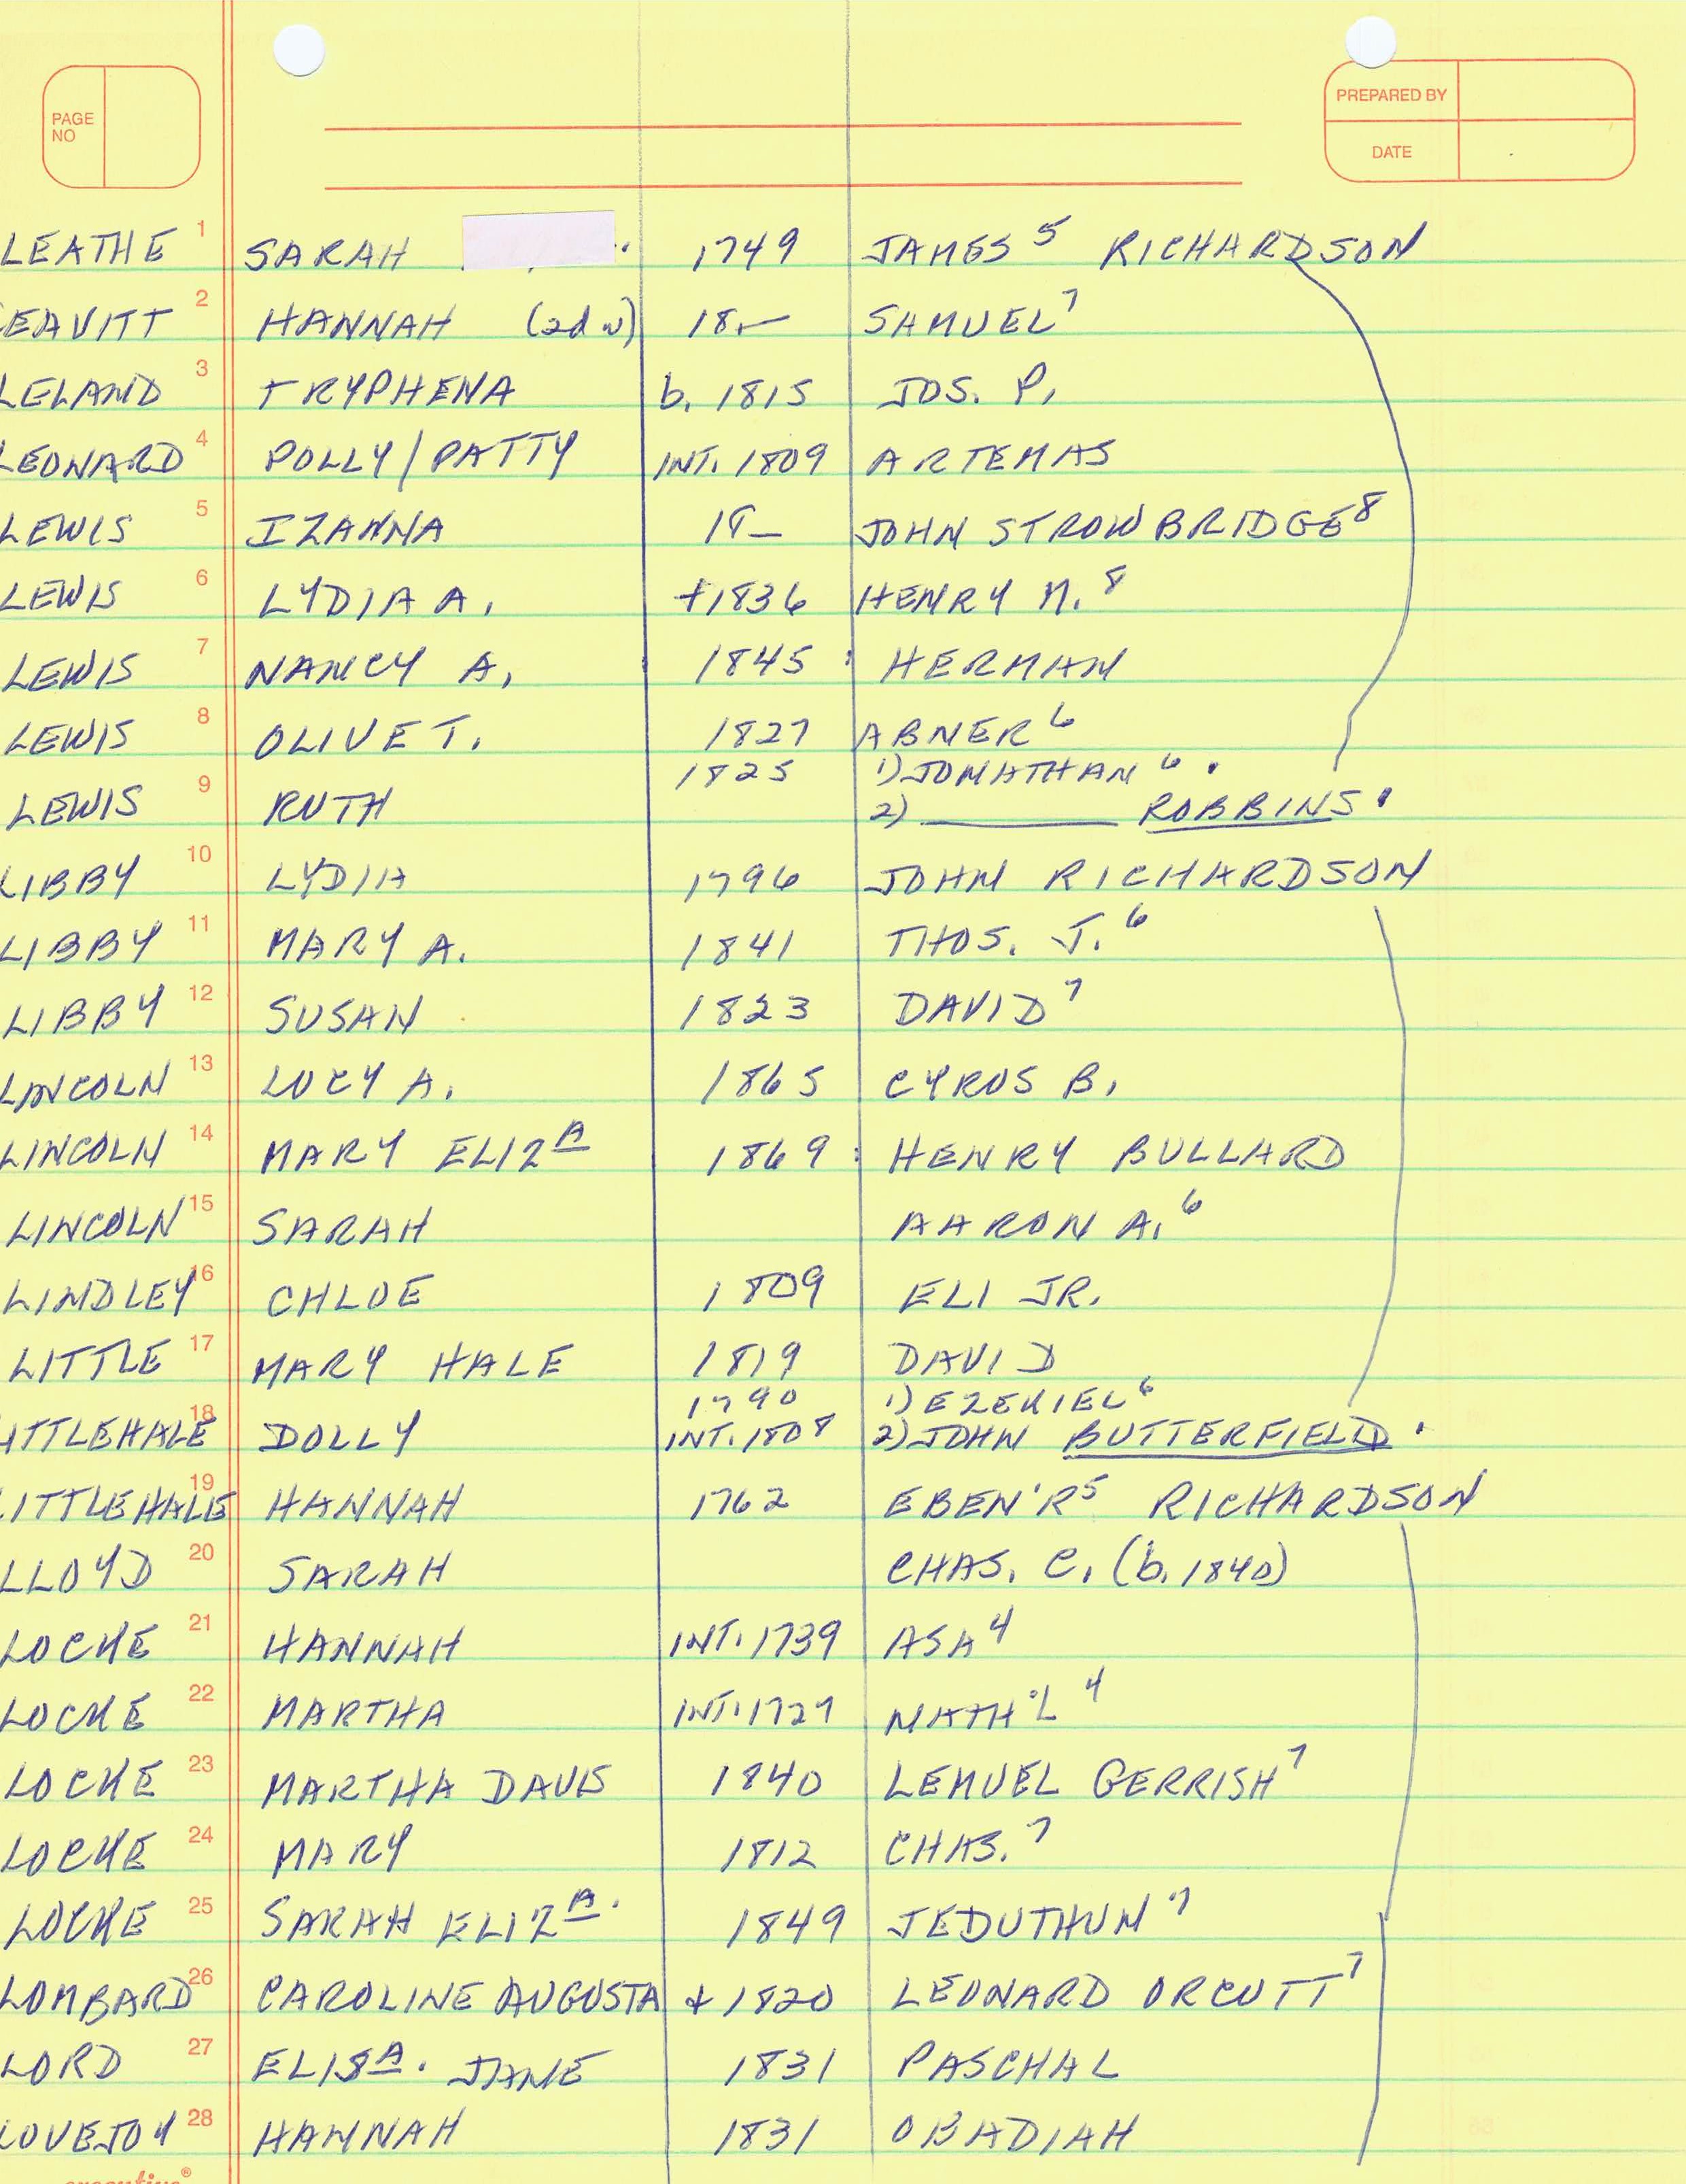 PAGE NO
PREPARED BY
DATE
LEATHE 1 SARAH 1749 JAMES⁵ RICHARDSON
EAVITT 2 HANNAH (2d w) 18— SAMUEL⁷
LELAND 3 TRYPHENA b. 1815 JOS. P.
LEONARD 4 POLLY/PATTY INT. 1809 ARTEMAS
LEWIS 5 IZANNA 18— JOHN STROWBRIDGE⁸
LEWIS 6 LYDIA A. +1836 HENRY N.⁸
LEWIS 7 NANCY A. 1845 : HERMAN
LEWIS 8 OLIVE T. 1827 ABNER⁶
1825 1) JONATHAN⁶ .
LEWIS 9 RUTH 2) ______ ROBBINS .
LIBBY 10 LYDIA 1796 JOHN RICHARDSON
LIBBY 11 MARY A. 1841 THOS. J.⁶
LIBBY 12 SUSAN 1823 DAVID⁷
LINCOLN 13 LUCY A. 1865 CYRUS B.
LINCOLN 14 MARY ELIZᴬ 1869 : HENRY BULLARD
LINCOLN 15 SARAH AARON A.⁶
LINDLEY 16 CHLOE 1809 ELI JR.
LITTLE 17 MARY HALE 1819 DAVID
1790 1) EZEKIEL⁶
ITTLEHALE 18 DOLLY INT. 1808 2) JOHN BUTTERFIELD .
LITTLEHALE 19 HANNAH 1762 EBEN'R⁵ RICHARDSON
LLOYD 20 SARAH CHAS. C. (b. 1840)
LOCKE 21 HANNAH INT. 1739 ASA⁴
LOCKE 22 MARTHA INT. 1727 NATH'L⁴
LOCKE 23 MARTHA DAVIS 1840 LEMUEL GERRISH⁷
LOCKE 24 MARY 1812 CHAS.⁷
LOCKE 25 SARAH ELIZᴬ. 1849 JEDUTHUN⁷
LOMBARD 26 CAROLINE AUGUSTA + 1820 LEONARD ORCUTT⁷
LORD 27 ELISᴬ. JANE 1831 PASCHAL
LOVEJOY 28 HANNAH 1831 OBADIAH